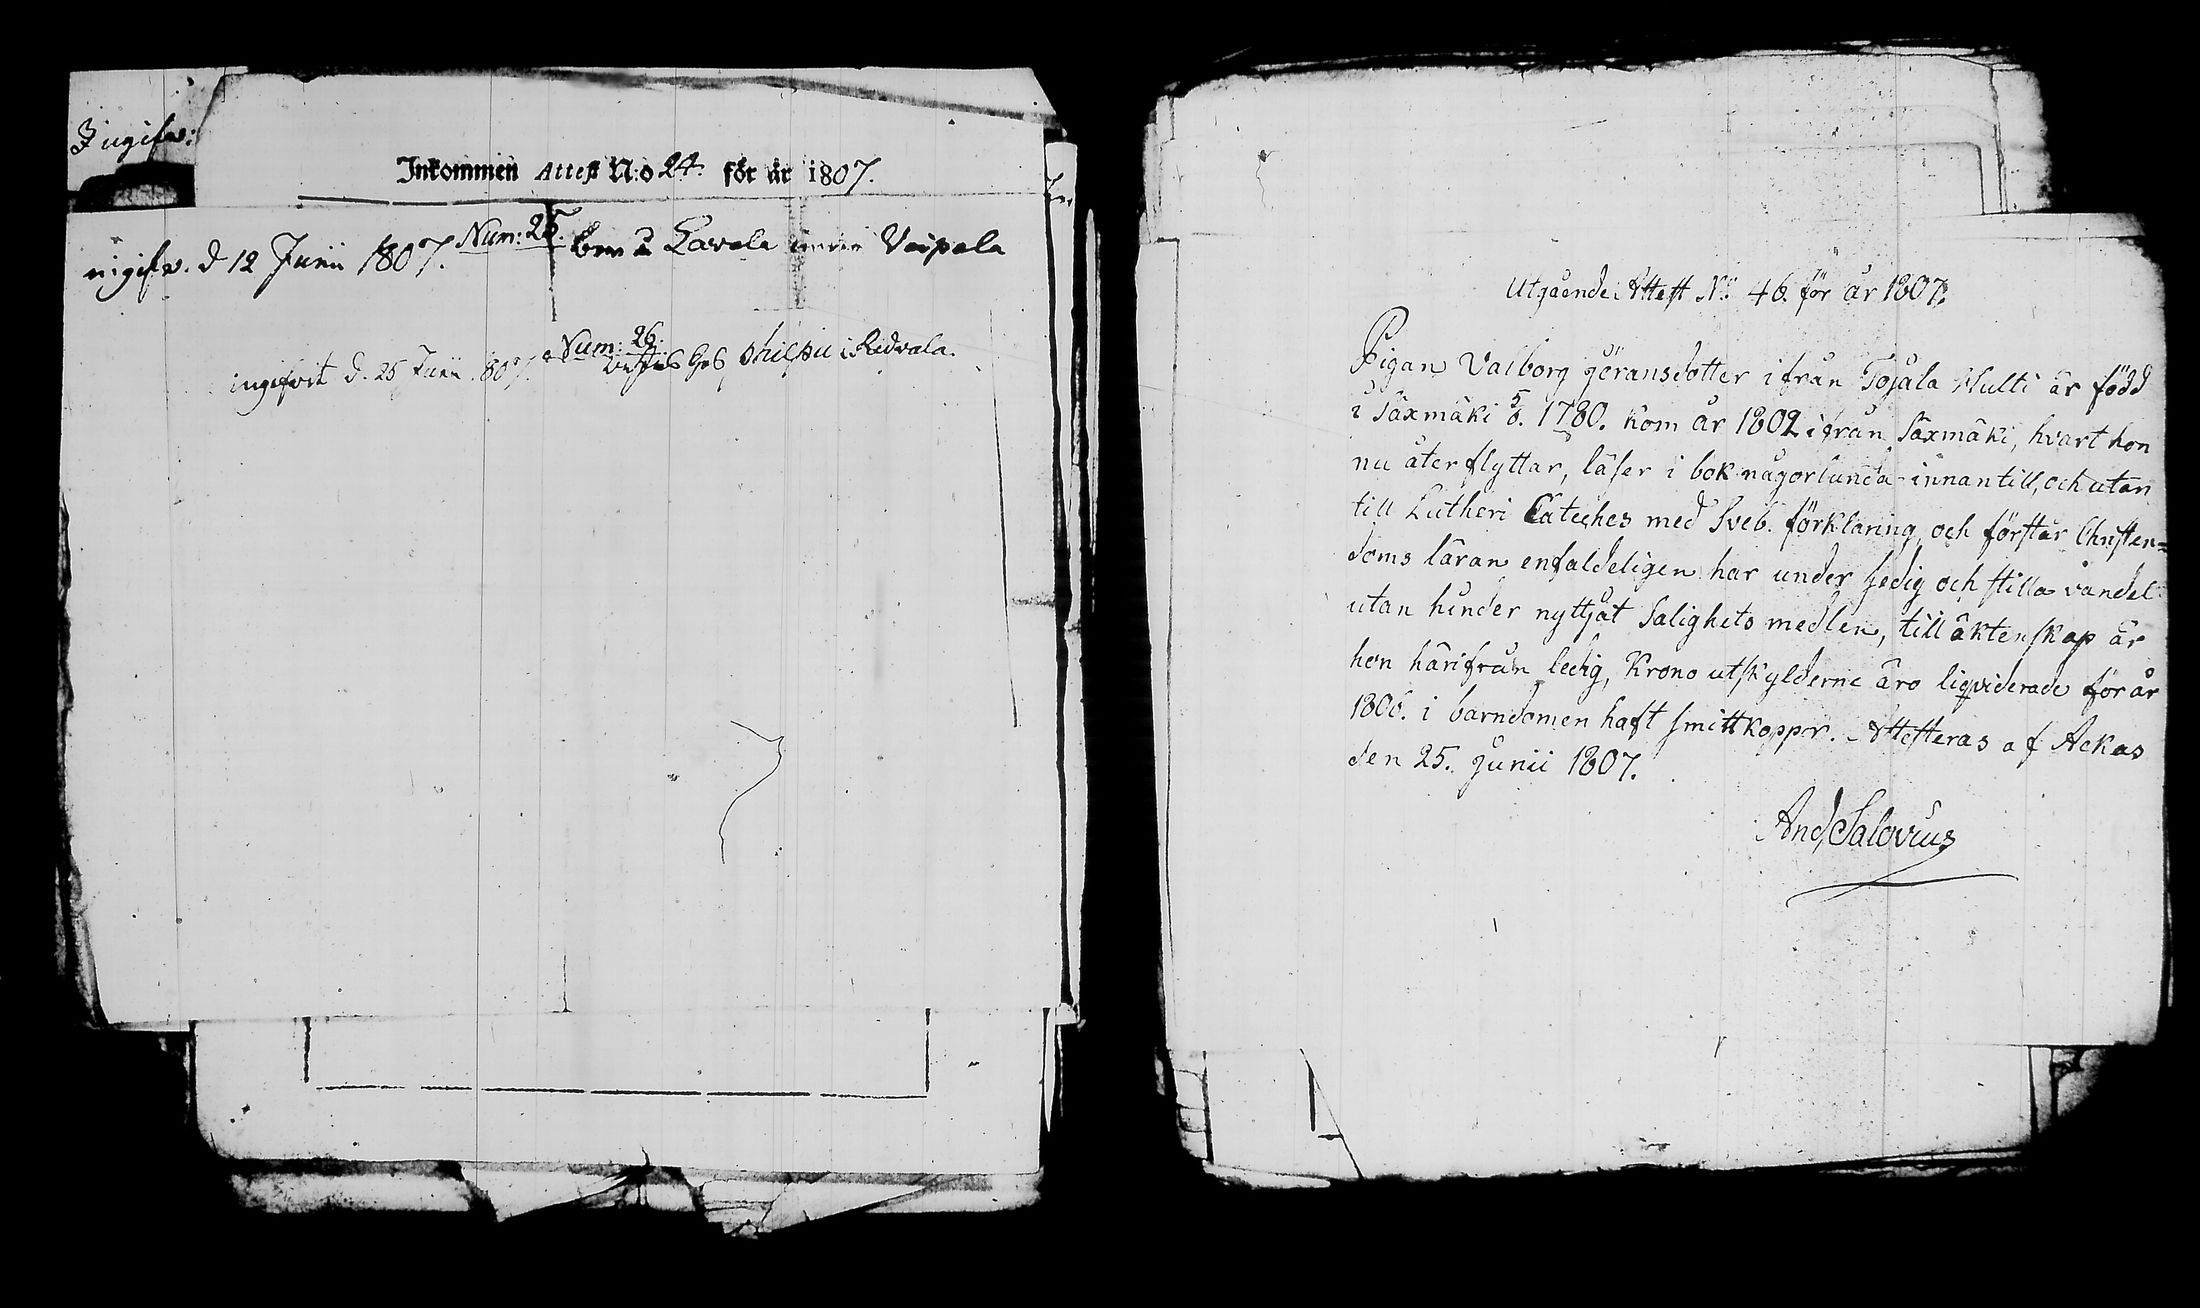 Ingifw:
Inkommen Attest N:o 24. för år 1807.
Num: 25.
ingifw. d 12 Junii 1807. Lavala Voipala
Num: 26.
ingifvit d. 25 Junii 1807. i Ridvala.
Utgående Attest No 46. för år 1807.
Pigan Valborg Göransdotter ifrån Tojala Multi är född
i Säxmäki 5/6. 1780. kom år 1802 ifrån Säxmäki, hvart hon
nu återflyttar, läser i bok någorlunda innantill, och utan
till Lutheri Cateches med Sveb. förklaring, och förstår Christen=
doms läran enfaldeligen har under sedig och stilla vandel
utan hinder nyttjat Salighets medlen, till äktenskap är
hon härifrån ledig, Krono utskylderne äro liqviderade för år
1806. i barndomen haft smittkoppor. Attesteras af Ackas
den 25. Junii 1807.
And, Salovius